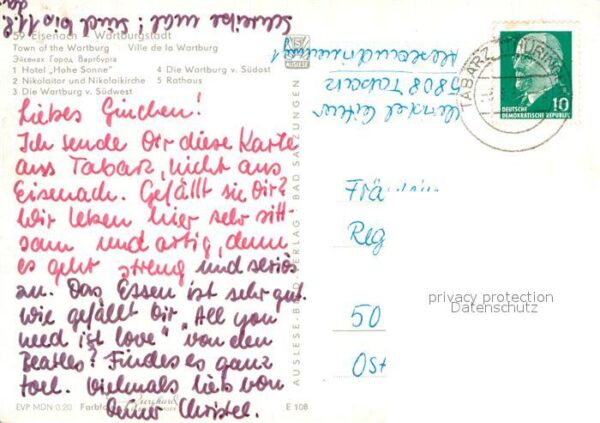 Schreibe mal! Sind bis 11.8.
59 Eisenach Wartburgstadt
Town of the Wartburg Ville de la Wartburg
Эйсенах Город Вартбурга
1 Hotel „Hohe Sonne" 4 Die Wartburg v. Südost
2 Nikolaitor und Nikolaikirche 5 Rathaus
3 Die Wartburg v. Südwest
Liebes Ginchen!
Ich sende Dir diese Karte
aus Tabarz, nicht aus
Eisenach. Gefällt sie Dir?
Wir leben hier sehr sitt-
sam und artig, denn
es geht streng und seriös
zu. Das Essen ist sehr gut.
Wie gefällt Dir „All you
need ist love" von den
Beatles? Findes es ganz
toll. Vielmals lieb von
Deiner Christel.
EVP MDN 0,20 Farbfoto
E 108
AUSLESE-BILD-VERLAG · BAD SALZUNGEN
5808 Tabarz
TABARZ
DEUTSCHE
DEMOKRATISCHE REPUBLIK
10
Frä
Reg
50
Ost
privacy protection
Datenschutz